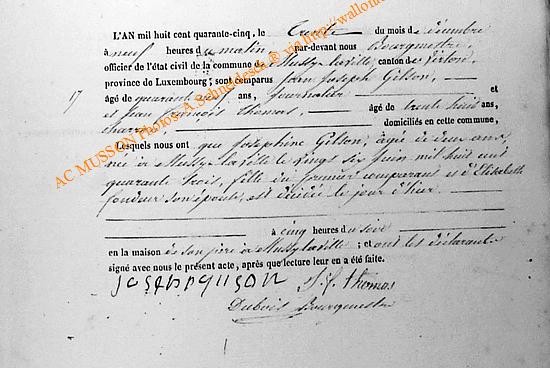 L'AN mil huit cent quarante-cinq, le trente du mois de décembre
à neuf heures du matin, par-devant nous Bourgmestre,
officier de l'état civil de la commune de Mussy-la-ville, canton de Virton,
province de Luxembourg, sont comparus Jean Joseph Gilson,
17 âgé de quarante ans, journalier
et Jean François Thomas, âgé de trente huit ans,
domiciliés en cette commune,
Lesquels nous ont que Josephine Gilson, agée de deux ans,
née à Mussy la ville le vingt six Juin mil huit cent
quarante trois, fille du premier comparant et d'Elisabeth
son épouse, est décédée le jour d'hier
à cinq heures du soir
en la maison de son père à Mussy laville; et ont les déclarants
signé avec nous le présent acte, après que lecture leur en a été faite.
J. f. thomas
Dubois Bourgmestre
AC MUSSON Photos A.Schneidesch @ via http://wallonia